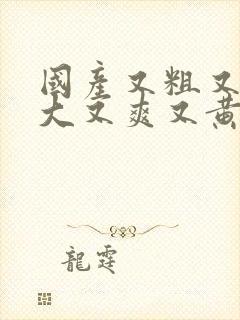 國產又粗又
大又爽又黃
龍霆